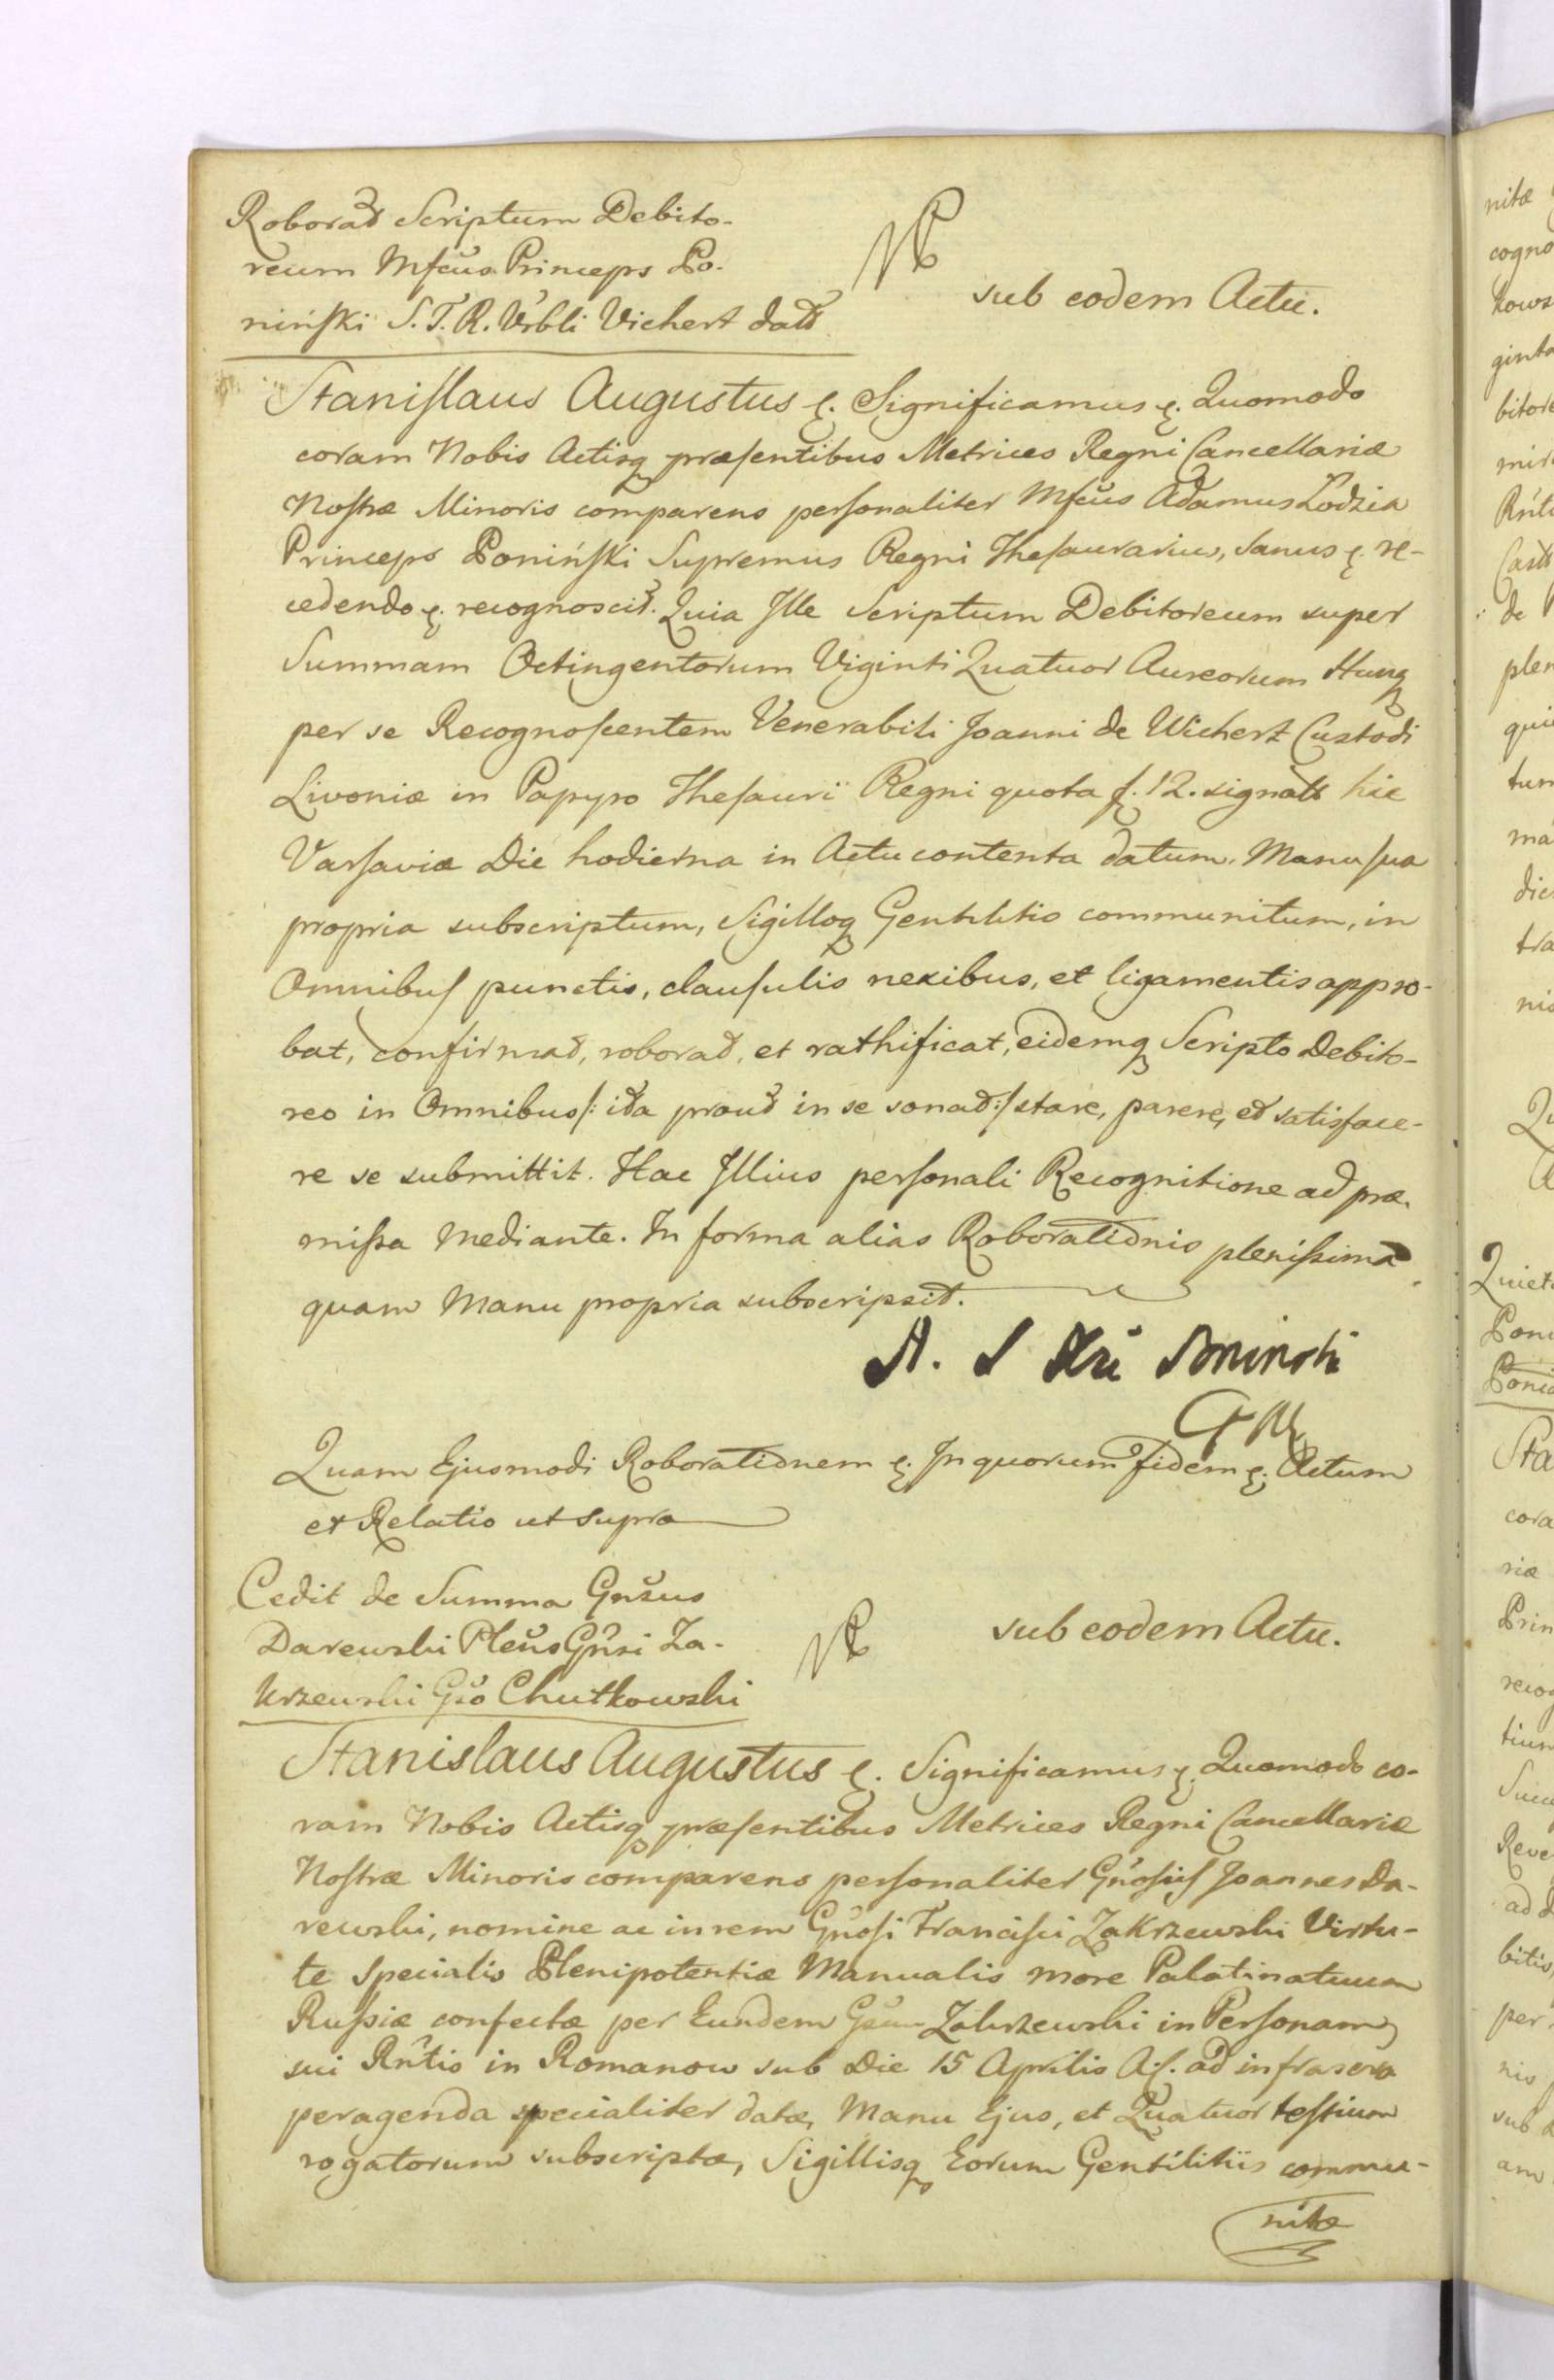 Roborat Scriptum Debito-
reum Mfcus Princeps Po-
niński S. T. R. Vrbli Vichert datt
sub eodem Actu.
Stanislaus Augustus &. Significamus &. Quomodo
coram Nobis Actisq præsentibus Metrices Regni Cancellariæ
Nostræ Minoris comparens personaliter Mfcus Adamus Łodzia
Princeps Poniński Supremus Regni Thesaurarius, sanus &. re-
cedendo &. recognoscit. Quia Ille Scriptum Debitoreum super
Summam Octingentorum Viginti Quatuor Aureorum Hung
per se Recognoscentem Venerabili Joanni de Wichert Custodi
Livoniæ in Papyro Thesauri Regni quota f. 12. signatt hic
Varsaviæ Die hodierna in Actu contenta datum. Manu sua
propria subscriptum, Sigilloq Gentilitio communitum, in
Omnibus punctis, clausulis nexibus, et ligamentis appro-
bat, confirmat, roborat, et rathificat, eidemq Scripto Debito-
reo in Omnibus /: ita prout in se sonat :/ stare, parere, et satisface-
re se submittit. Hac Illius personali Recognitione ad præ-
missa Mediante. In forma alias Roborationis plenissima
quam Manu propria subscripsit.
A. Ł Xże Poninski
Quam Ejusmodi Roborationem &. In quorum fidem &. Actum
et Relatio ut supra
Cedit de Summa Gnsus
Darewski Plens Gnsi Za-
krzewski Gso Chutkowski
sub eodem Actu.
Stanislaus Augustus &. Significamus &. Quomodo co-
ram Nobis Actisq præsentibus Metrices Regni Cancellariæ
Nostræ Minoris comparens personaliter Gnosus Joannes Da-
rewski, nomine ac in rem Gnosi Francisci Zakrzewski Virtu-
te Specialis Plenipotentiæ Manualis more Palatinatuum
Russiæ confectæ per Eundem Gsum Zakrzewski in Personam
sui Rntis in Romanow sub Die 15 Aprilis A. f. ad infrascra
peragenda specialiter datæ, Manu Ejus, et Quatuor testium
rogatorum subscriptæ, Sigillisq Eorum Gentilitiis commu-
nitæ